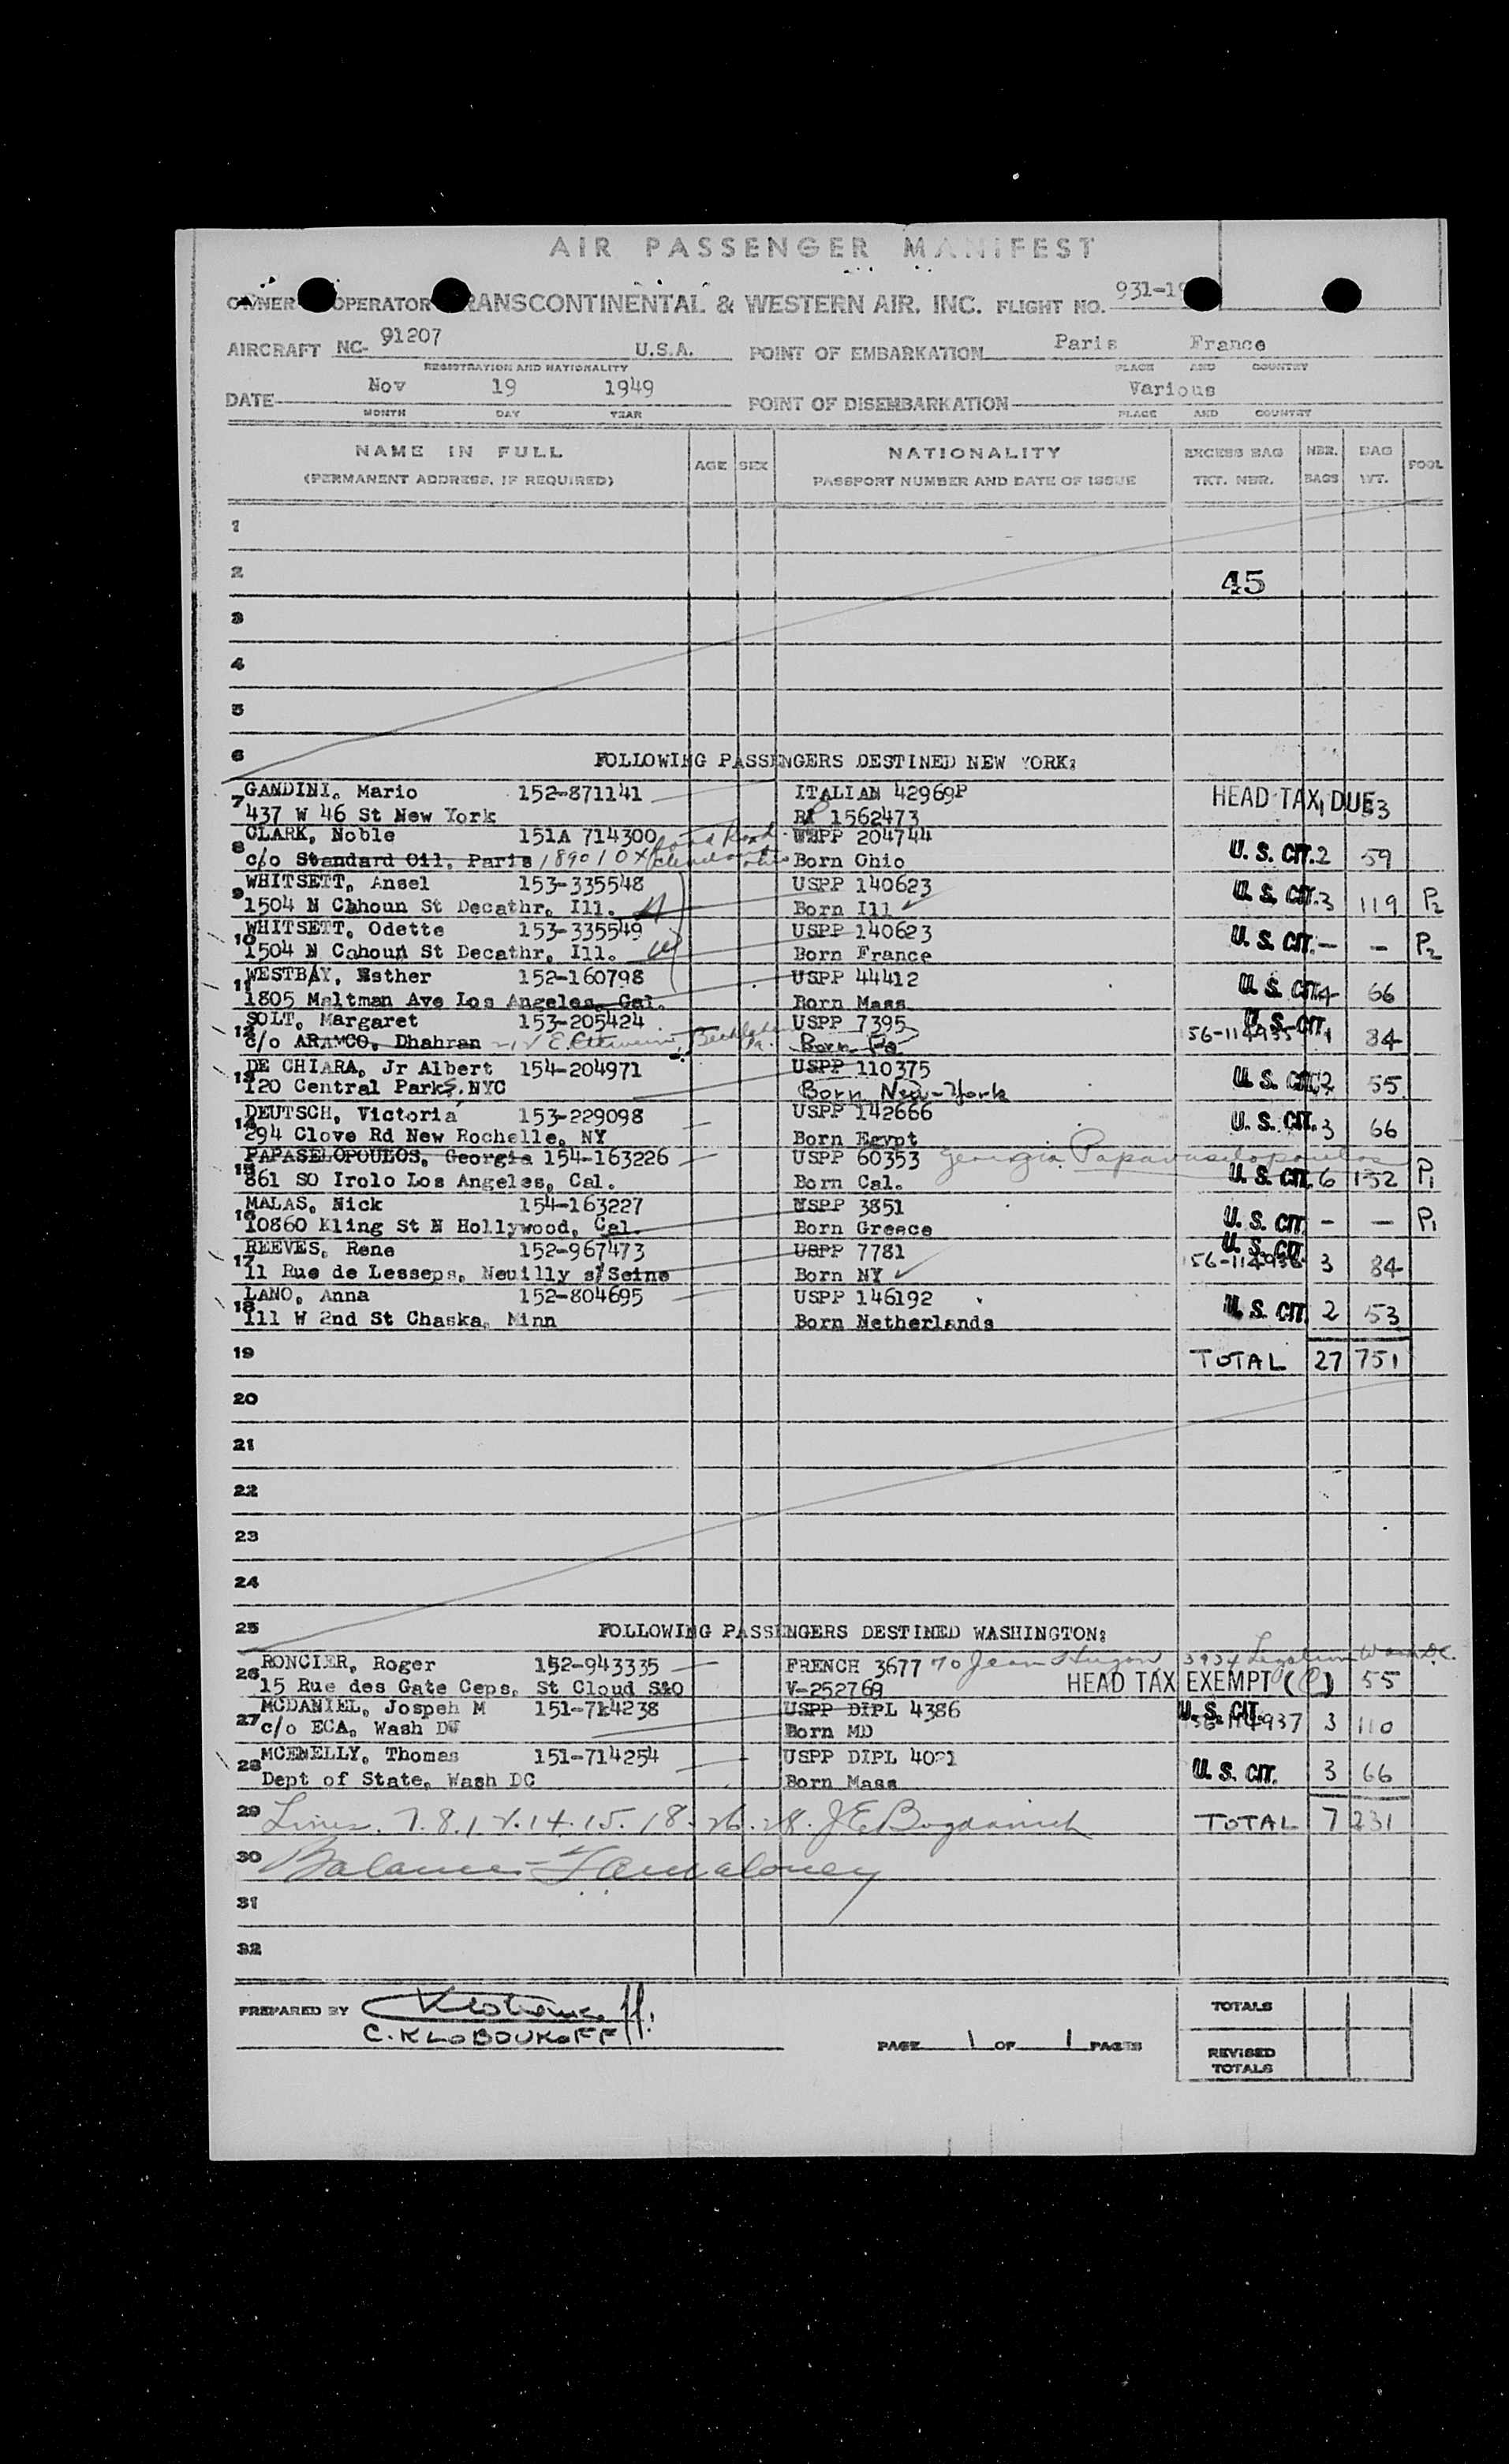 AIR PASSENGER MANIFEST
OWNER OPERATOR TRANSCONTINENTAL & WESTERN AIR, INC. FLIGHT NO. 931-19
AIRCRAFT NC- 91207 U.S.A. POINT OF EMBARKATION Paris France
REGISTRATION AND NATIONALITY PLACE AND COUNTRY
DATE Nov 19 1949 POINT OF DISEMBARKATION Various
MONTH DAY YEAR PLACE AND COUNTRY
NAME IN FULL AGE SEX NATIONALITY EXCESS BAG NBR. BAG POOL
(PERMANENT ADDRESS, IF REQUIRED) PASSPORT NUMBER AND DATE OF ISSUE TKT. NBR. BAGS WT.
1
2 45
3
4
5
6 FOLLOWING PASSENGERS DESTINED NEW YORK:
GANDINI, Mario 152-871141 ITALIAN 42969P HEAD TAX DUE
7 437 W 46 St New York RP 1562473
CLARK, Noble 151A 714300 Road 204744
8 c/o Standard Oil, Paris 18901 Born Ohio U. S. CIT. 2 59
WHITSETT, Ansel 153-335548 USPP 140623
9 1504 N Cahoun St Decathr, Ill. Born Ill U. S. CIT. 3 119 P2
WHITSETT, Odette 153-335549 USPP 140623
10 1504 N Cahoun St Decathr, Ill. Born France U. S. CIT. — — P2
WESTBAY, Esther 152-160798 USPP 44412
11 1805 Maltman Ave Los Angeles, Cal. Born Mass U. S. CIT. 4 66
SOLT, Margaret 153-205424 USPP 7395 U. S. CIT.
12 c/o ARAMCO, Dhahran Bethlehem Pa. Born Pa 156-114935 1 84
DE CHIARA, Jr Albert 154-204971 USPP 110375
13 120 Central Park S. NYC Born New-York U. S. CIT. 2 55
DEUTSCH, Victoria 153-229098 USPP 142666
14 294 Clove Rd New Rochelle, NY Born Egypt U. S. CIT. 3 66
PAPASELOPOULOS, Georgia 154-163226 USPP 60353 Georgia Papavasilopoulos
15 861 SO Irolo Los Angeles, Cal. Born Cal. U. S. CIT. 6 132 P1
MALAS, Nick 154-163227 USPP 3851
16 10860 Kling St N Hollywood, Cal. Born Greece U. S. CIT. — — P1
REEVES, Rene 152-967473 USPP 7781 U. S. CIT.
17 11 Rue de Lesseps, Neuilly s/Seine Born NY 156-114936 3 84
LANO, Anna 152-804695 USPP 146192
18 111 W 2nd St Chaska, Minn Born Netherlands U. S. CIT. 2 53
19 TOTAL 27 751
20
21
22
23
24
25 FOLLOWING PASSENGERS DESTINED WASHINGTON:
RONCIER, Roger 152-943335 FRENCH 3677 To Jean Hugon Wash D.C.
26 15 Rue des Gate Ceps, St Cloud S&O V-252769 HEAD TAX EXEMPT 55
MCDANIEL, Jospeh M 151-714238 USPP DIPL 4386 U. S. CIT.
27 c/o ECA, Wash DC Born MD 156-114937 3 110
MCENELLY, Thomas 151-714254 USPP DIPL 4021
28 Dept of State, Wash DC Born Mass U. S. CIT. 3 66
29 Lines. 7. 8. 12. 14. 15. 18. 26. 28. TOTAL 7 231
30 Balance
31
32
PREPARED BY TOTALS
C. KLOBOUKOFF
PAGE 1 OF 1 PAGES REVISED TOTALS